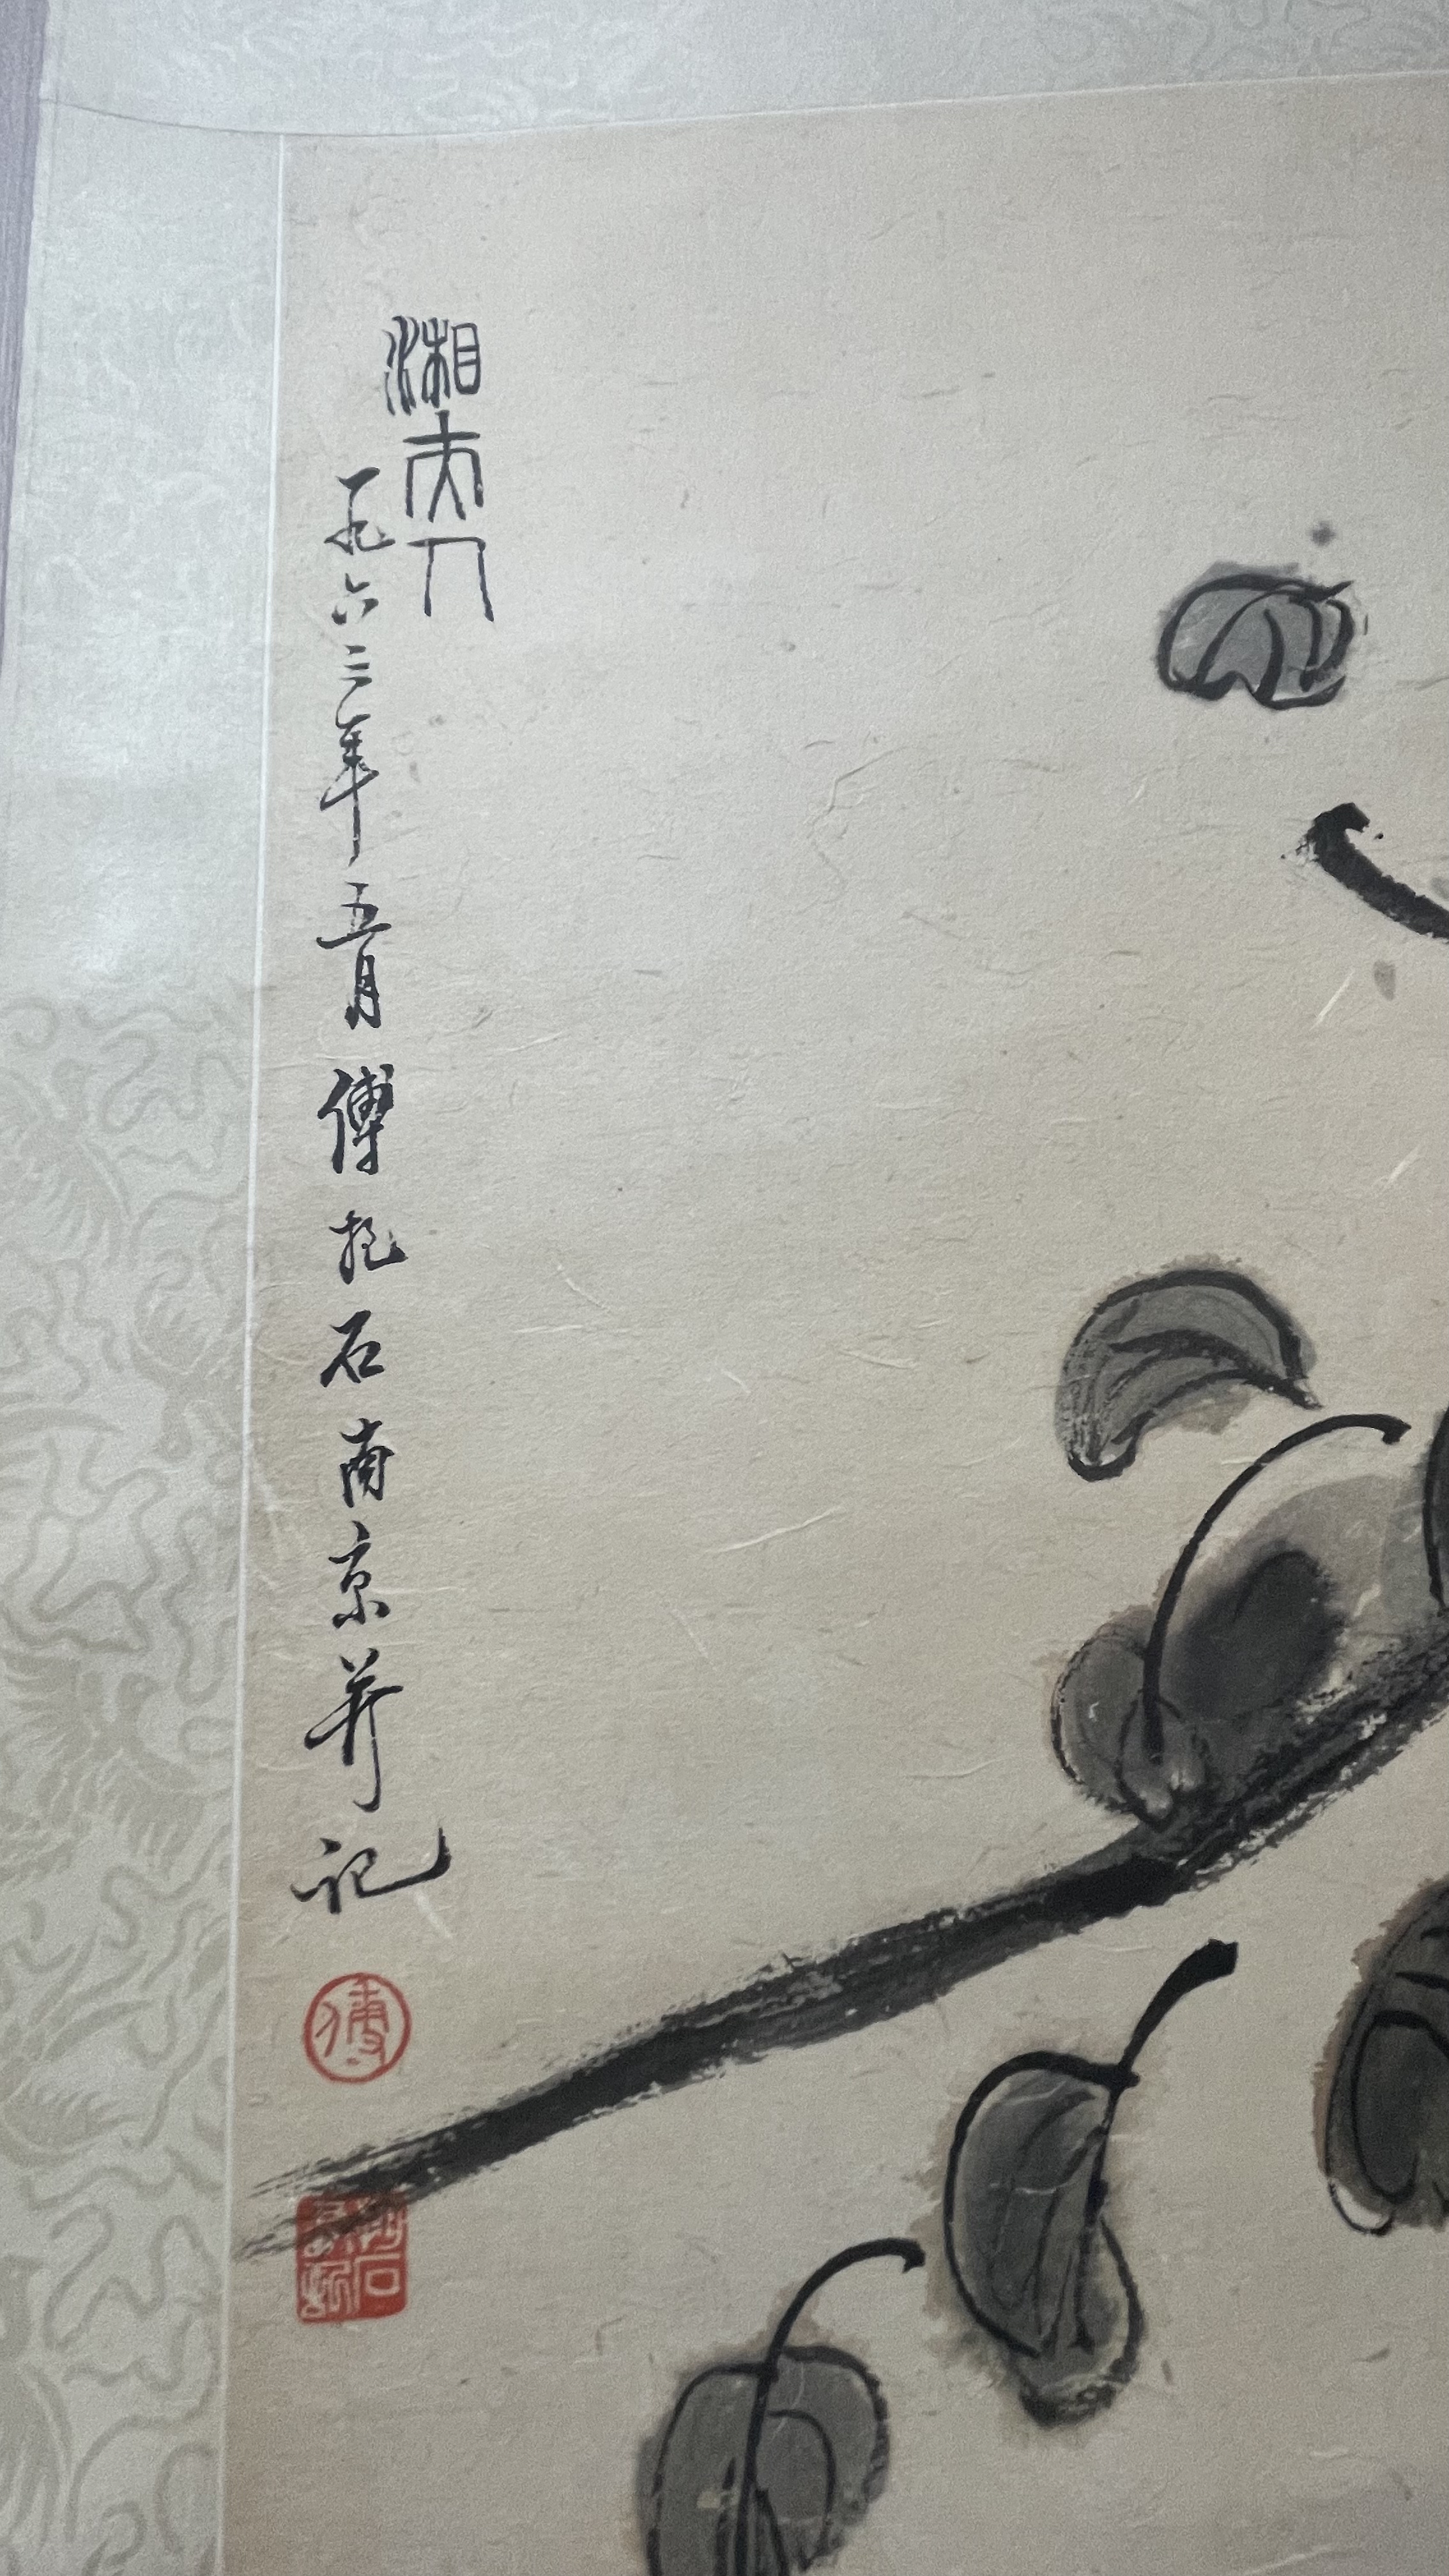 湘夫人
一九六三年五月傅抱石南京并记
傅